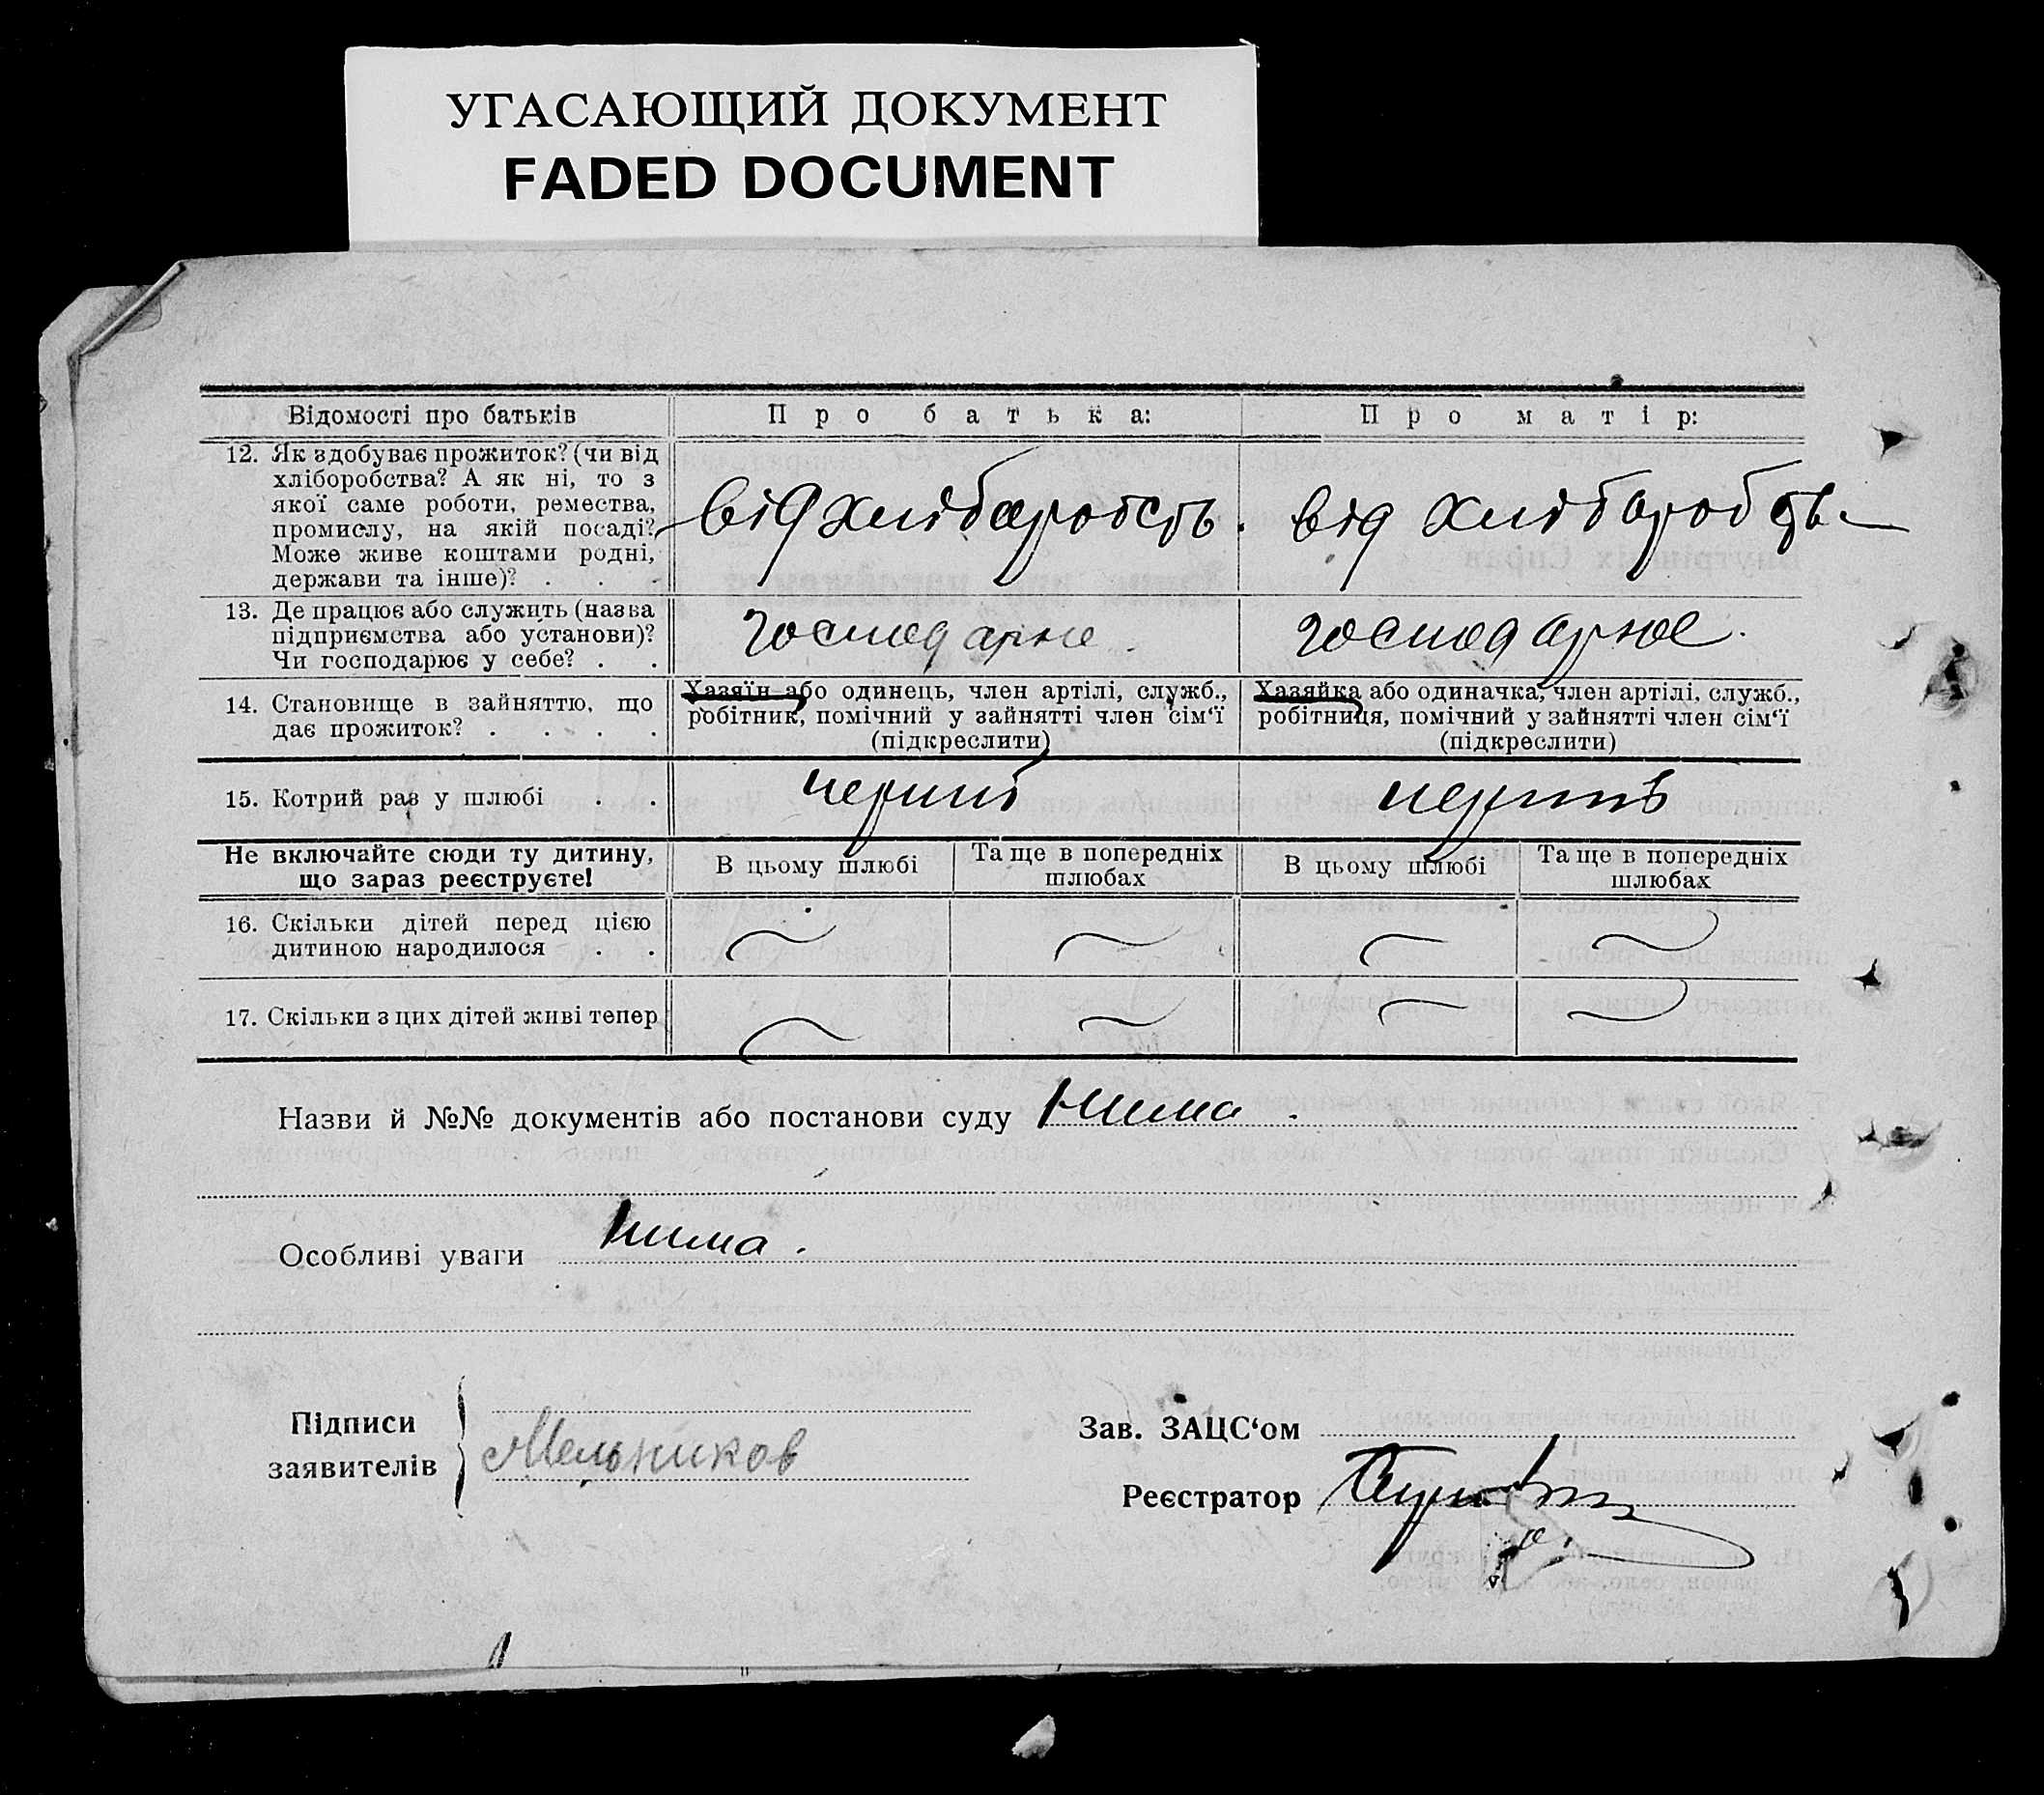 УГАСАЮЩИЙ ДОКУМЕНТ
FADED DOCUMENT
Відомості про батьків
Про батька:
Про матір:
12. Як здобуває прожиток? (чи від
хліборобства? А як ні, то з
якої саме роботи, ремества,
промислу, на якій посаді?
Може живе коштами родні,
держави та інше)? . . .
від хліборобств.
від хліборобств
13. Де працює або служить (назва
підприємства або установи)?
Чи господарює у себе? . .
господарює.
господарює.
14. Становище в зайняттю, що
дає прожиток? . . . .
Хазяїн або одинець, член артілі, служб.,
робітник, помічний у зайнятті член сім‘ї
(підкреслити)
Хазяйка або одиначка, член артілі, служб.,
робітниця, помічний у зайнятті член сім‘ї
(підкреслити)
15. Котрий раз у шлюбі . .
перший
перший
Не включайте сюди ту дитину,
що зараз реєструєте!
В цьому шлюбі
Та ще в попередніх
шлюбах
В цьому шлюбі
Та ще в попередніх
шлюбах
16. Скільки дітей перед цією
дитиною народилося . .
17. Скільки з цих дітей живі тепер
Назви й №№ документів або постанови суду Нима.
Особливі уваги Нима.
Підписи
заявителів
Мельников
Зав. ЗАЦС‘ом
Реєстратор